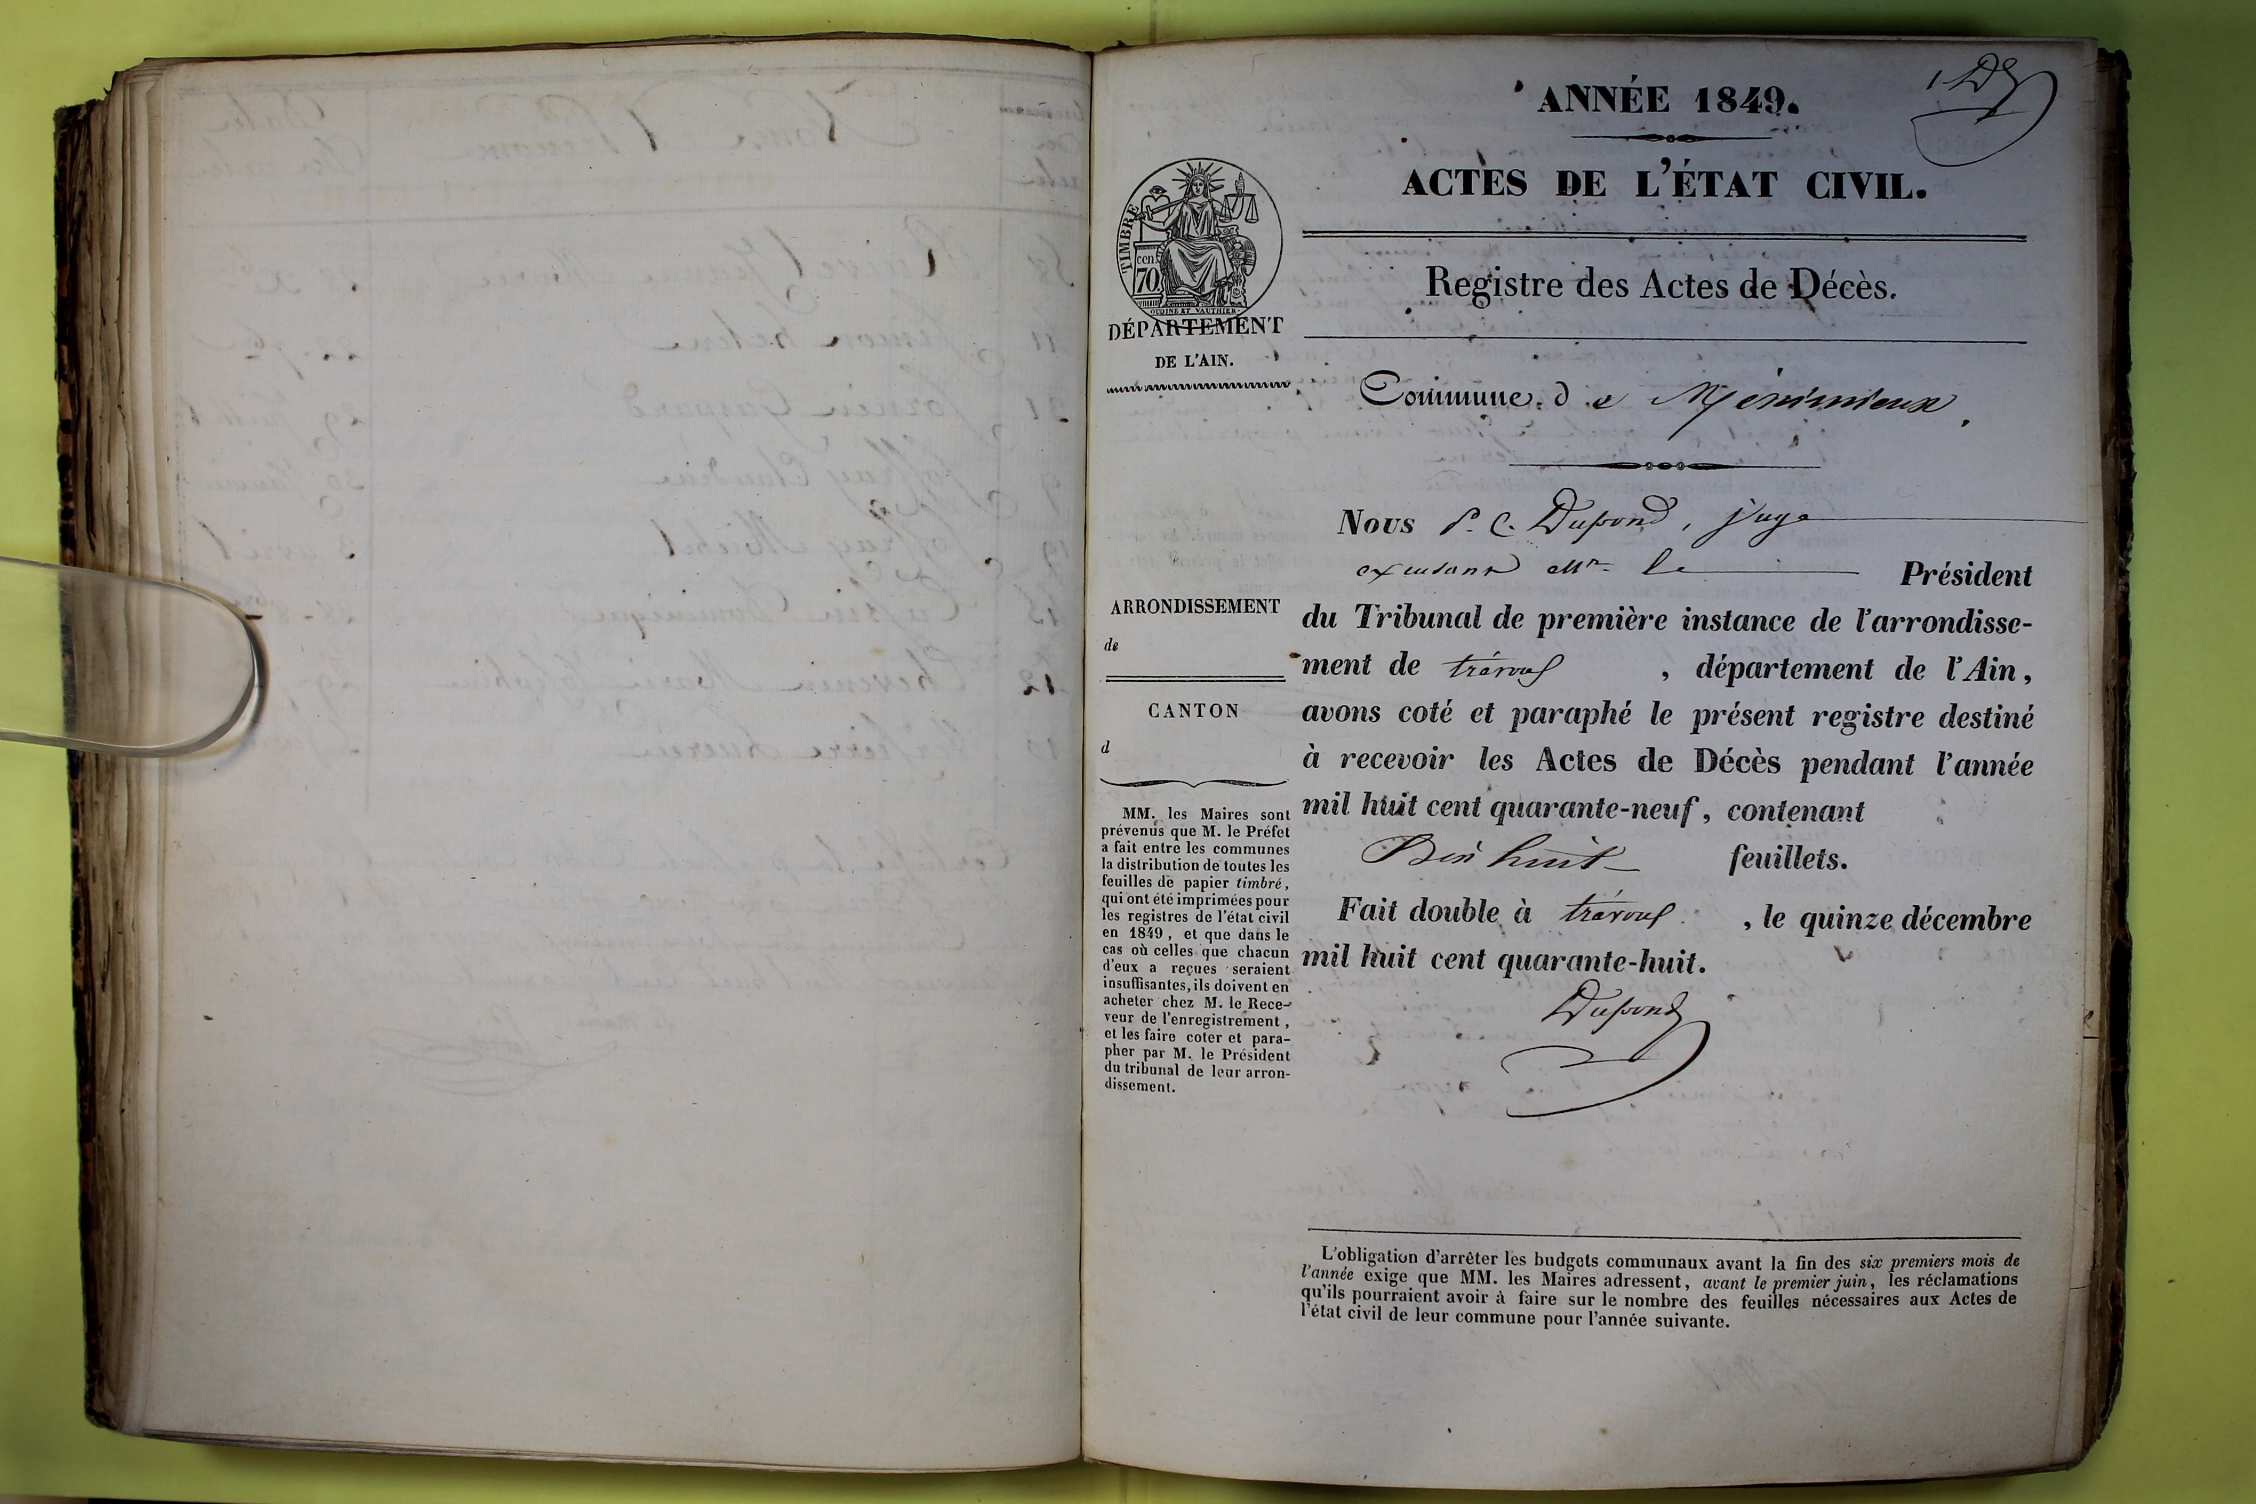 1. D
ANNÉE 1849.
ACTES DE L'ÉTAT CIVIL.
Registre des Actes de Décès.
TIMBRE
cen.
70
OUDINÉ ET VAUTHIER
DÉPARTEMENT
DE L'AIN.
Commune de Méximieux.
Nous P. C. Dupond, juge
excusant Mr. le Président
du Tribunal de première instance de l'arrondisse-
ment de trévoux, département de l'Ain,
avons coté et paraphé le présent registre destiné
à recevoir les Actes de Décès pendant l'année
mil huit cent quarante-neuf, contenant
Dix huit feuillets.
Fait double à trévoux, le quinze décembre
mil huit cent quarante-huit.
Dupond
ARRONDISSEMENT
de
CANTON
d
MM. les Maires sont
prévenus que M. le Préfet
a fait entre les communes
la distribution de toutes les
feuilles de papier timbré,
qui ont été imprimées pour
les registres de l'état civil
en 1849, et que dans le
cas où celles que chacun
d'eux a reçues seraient
insuffisantes, ils doivent en
acheter chez M. le Rece-
veur de l'enregistrement,
et les faire coter et para-
pher par M. le Président
du tribunal de leur arron-
dissement.
L'obligation d'arrêter les budgets communaux avant la fin des six premiers mois de
l'année exige que MM. les Maires adressent, avant le premier juin, les réclamations
qu'ils pourraient avoir à faire sur le nombre des feuilles nécessaires aux Actes de
l'état civil de leur commune pour l'année suivante.